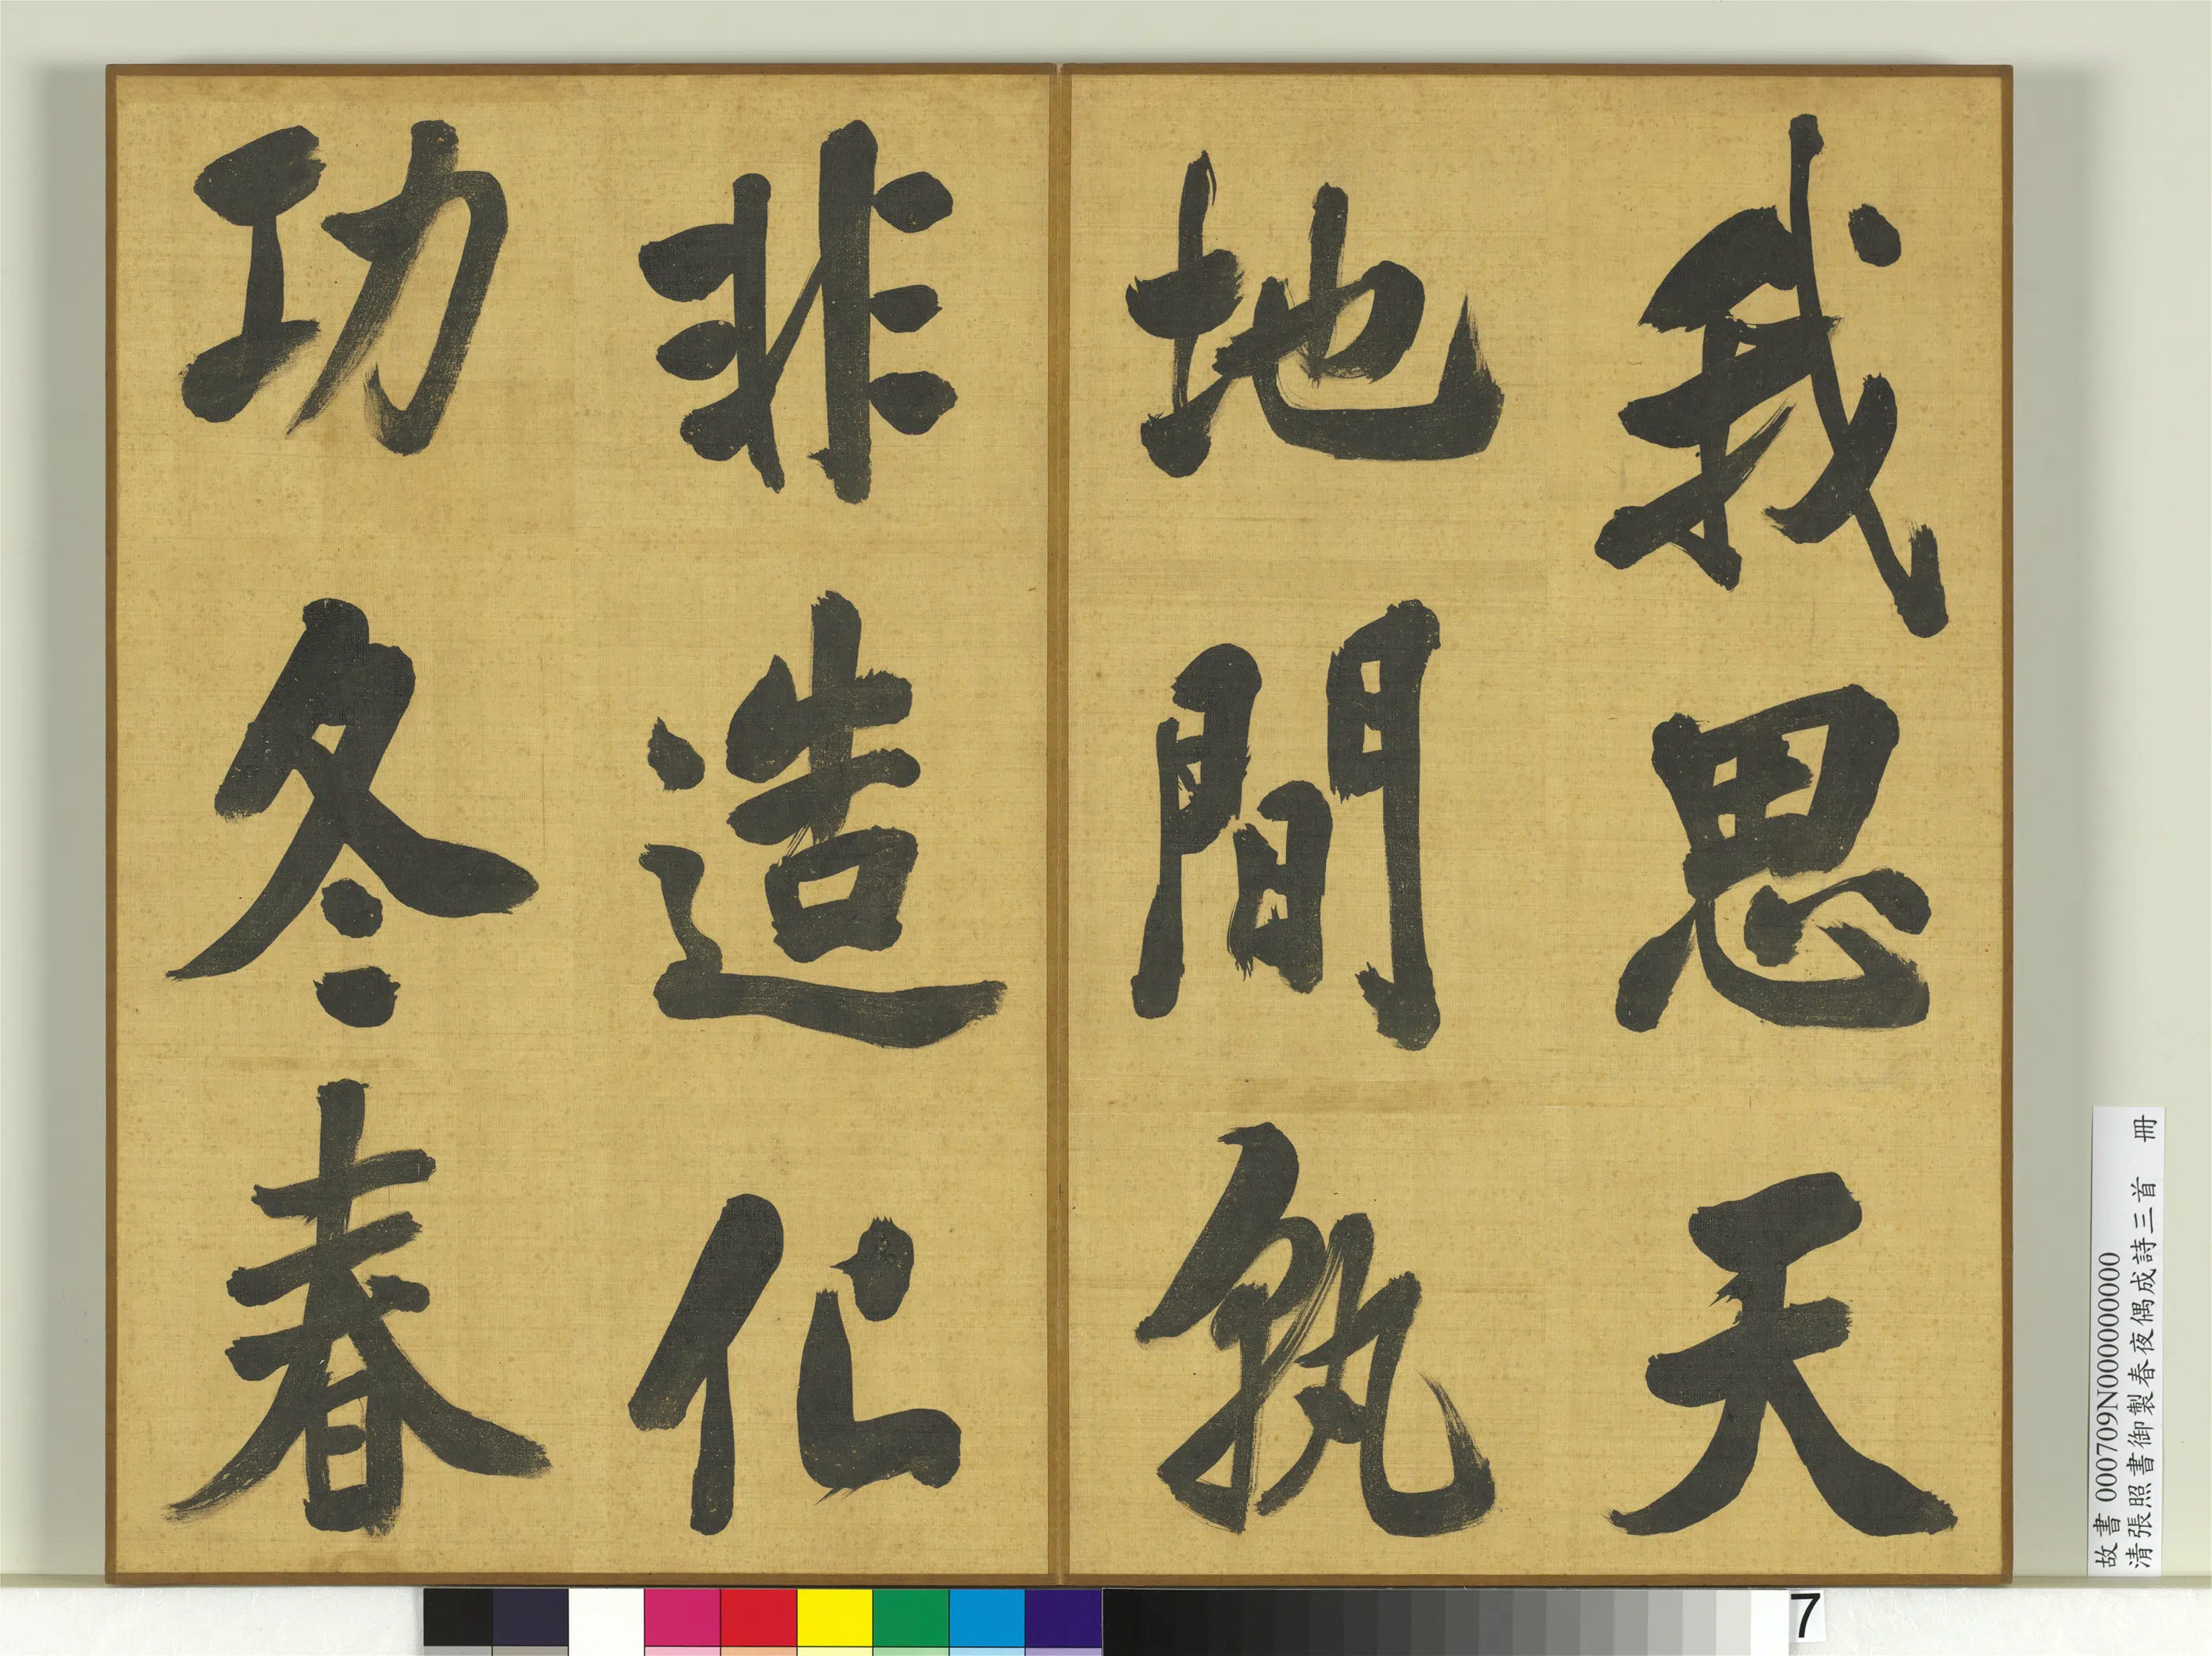 我思天
地間孰
非造化
功冬春
故書 000709N000000000
清張照書御製春夜偶成詩三首 冊
7